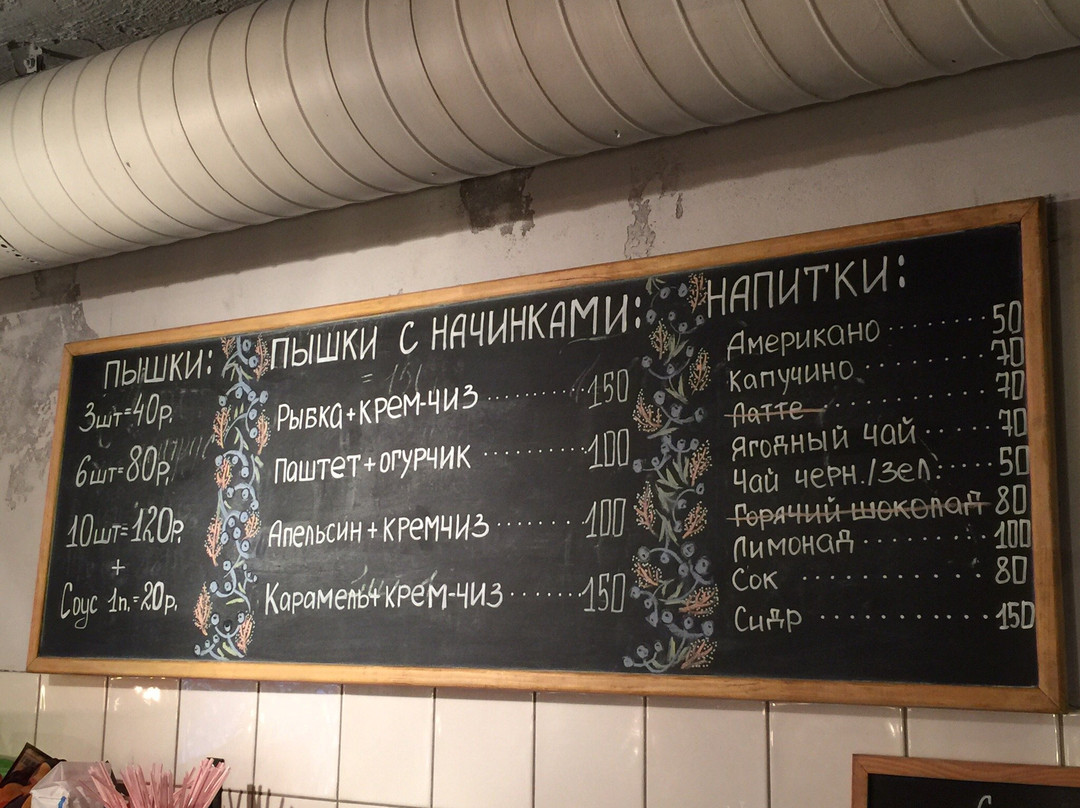 ПЫШКИ:
3шт=40р.
6шт=80р.
10шт=120р.
+
Соус 1п.=20р.
ПЫШКИ С НАЧИНКАМИ:
Рыбка+крем-чиз ........... 150
Паштет+огурчик ........... 100
Апельсин+кремчиз ......... 100
Карамель+крем-чиз ........ 150
НАПИТКИ:
Американо ......... 50
Капучино .......... 70
Латте ............. 70
Ягодный чай ....... 70
Чай черн./зел. .... 50
Горячий шоколад 80
Лимонад ........... 100
Сок ............... 80
Сидр .............. 150